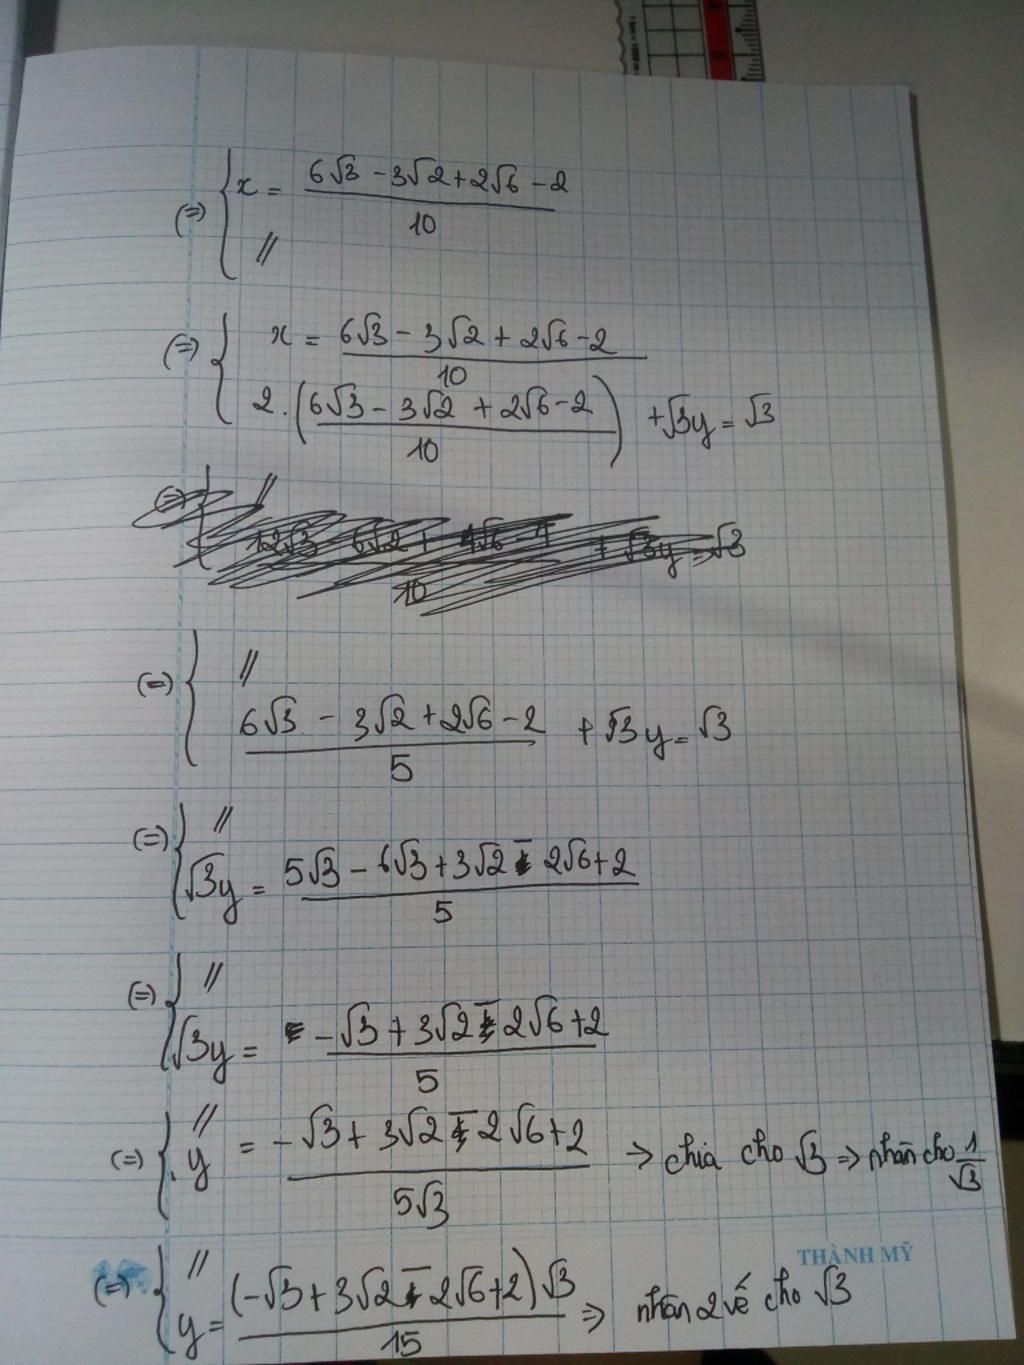 (=) { x = (6√3 - 3√2 + 2√6 - 2)/10
//
(=) { x = (6√3 - 3√2 + 2√6 - 2)/10
2.((6√3 - 3√2 + 2√6 - 2)/10) + √3y = √3
(=) { //
(6√3 - 3√2 + 2√6 - 2)/5 + √3y = √3
(=) { //
√3y = (5√3 - 6√3 + 3√2 - 2√6 + 2)/5
(=) { //
√3y = (-√3 + 3√2 - 2√6 + 2)/5
(=) { //
y = (-√3 + 3√2 - 2√6 + 2)/(5√3) → chia cho √3 => nhân cho 1/√3
THÀNH MỸ
(=) { //
y = ((-√3 + 3√2 - 2√6 + 2)√3)/15 => nhân 2 vế cho √3